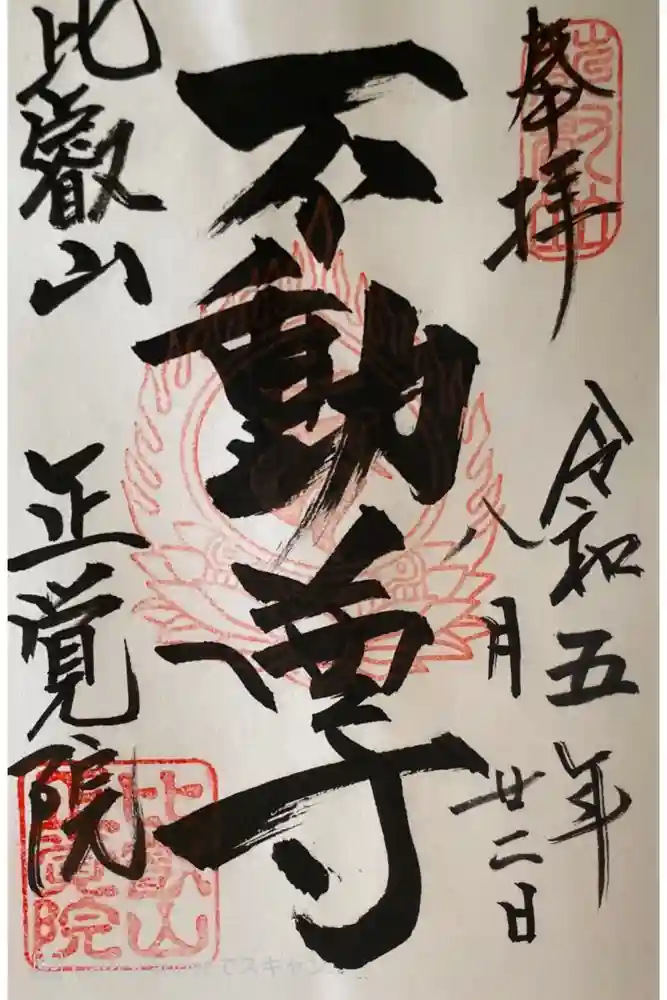 奉拝
令和五年
八月廿二日
不動尊
比叡山
正覚院
比叡山
正覚院
でスキャン